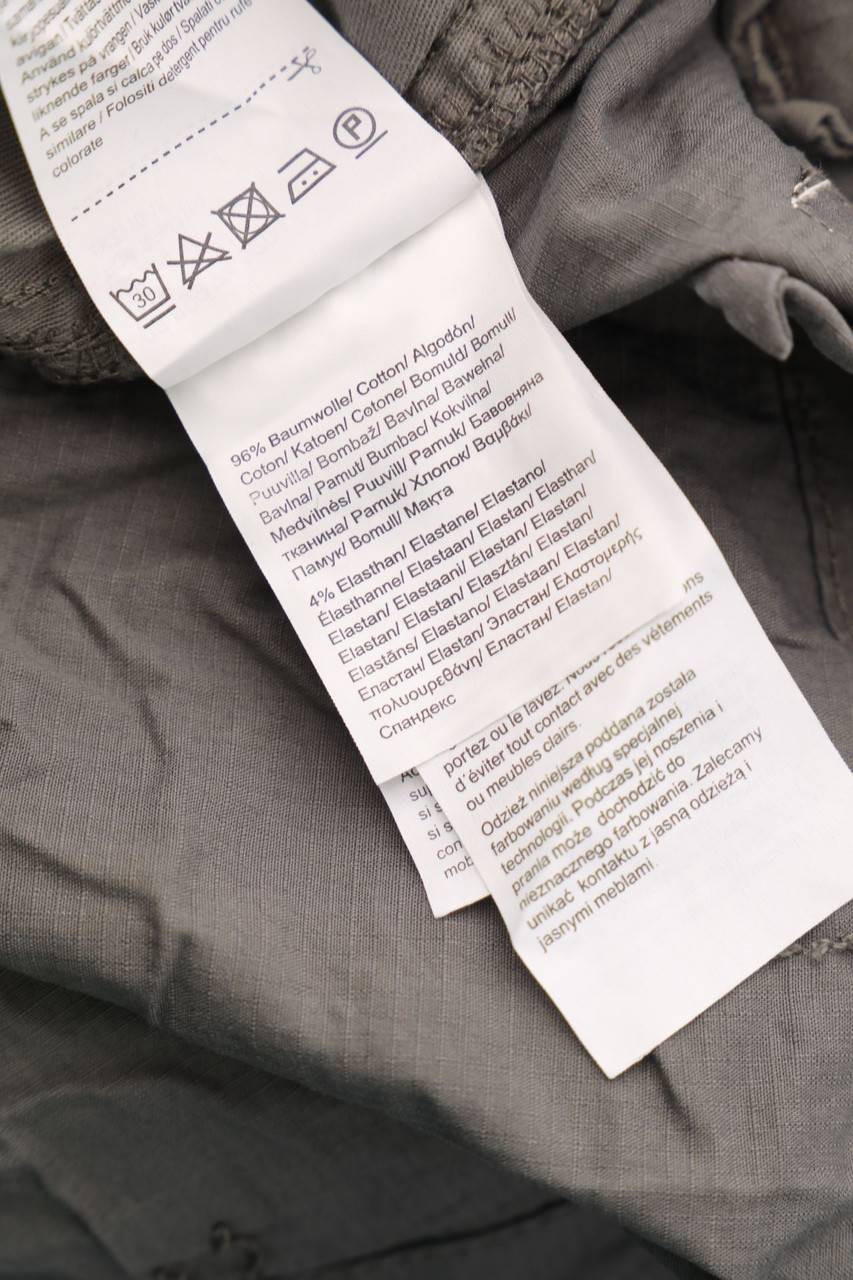 avigat/Tvättas
Använd kulörtvättmedel
strykes på vrangen / Vask
liknende farger / Bruk kulørtva
A se spala si calca pe dos / Spalati c
similare / Folositi detergent pentru rufe
colorate
30
P
96% Baumwolle/ Cotton/ Algodón/
Coton/ Katoen/ Cotone/ Bomuld/ Bomull/
Puuvilla/ Bombaž/ Bavlna/ Bawełna/
Bavlna/ Pamut/ Bumbac/ Kokvilna/
Medvilnės/ Puuvill/ Pamuk/ Бавовняна
тканина/ Pamuk/ Хлопок/ Βαμβάκι/
Памук/ Bomull/ Мақта
4% Elasthan/ Elastane/ Elastano/
Élasthanne/ Elastaan/ Elastan/ Elasthan/
Elastan/ Elastaani/ Elastan/ Elastan/
Elastan/ Elastan/ Elasztán/ Elastan/
Elastāns/ Elastano/ Elastaan/ Elastan/
Еластан/ Elastan/ Эластан/ Ελαστομερής
πολυουρεθάνη/ Еластан/ Elastan/
Спандекс
ons
portez ou le lavez.
d'éviter tout contact avec des vêtements
ou meubles clairs.
Odzież niniejsza poddana została
farbowaniu według specjalnej
technologii. Podczas jej noszenia i
prania może dochodzić do
nieznacznego farbowania. Zalecamy
unikać kontaktu z jasną odzieżą i
jasnymi meblami.
su
si s
si s
con
mob